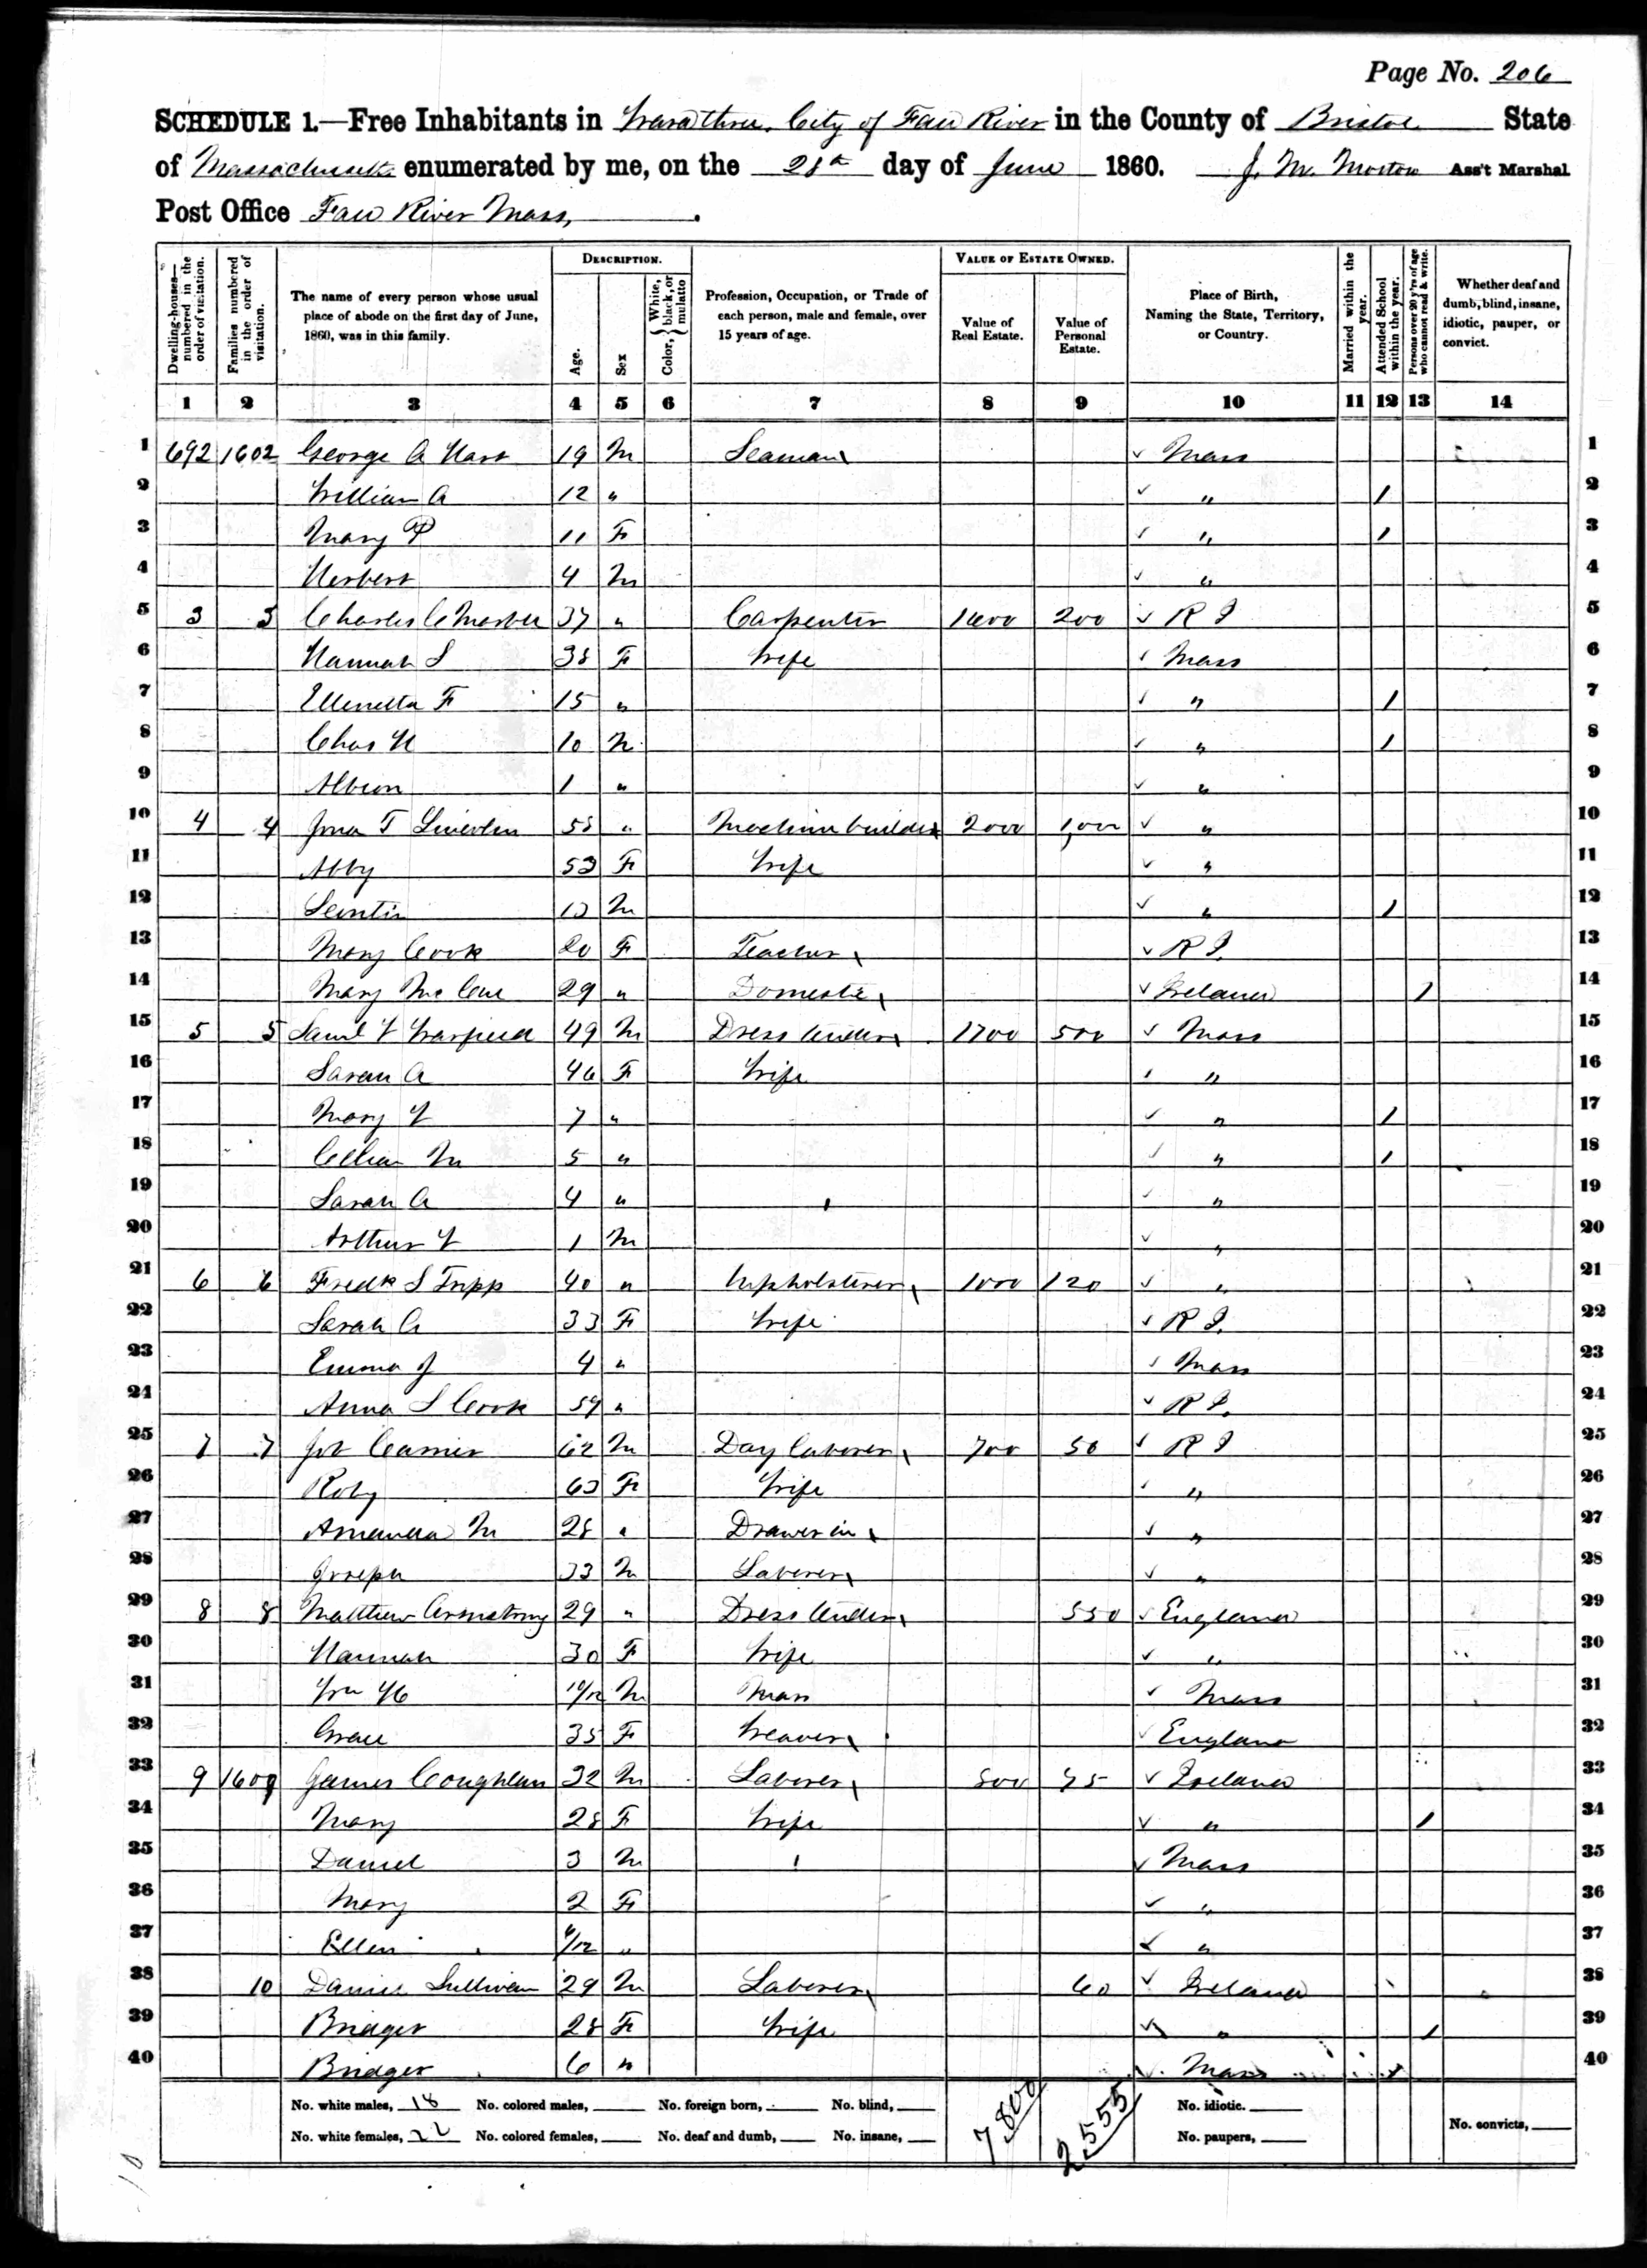 Page No. 206
SCHEDULE 1.—Free Inhabitants in Ward three, City of Fall River in the County of Bristol State
of Massachusetts enumerated by me, on the 28th day of June 1860. J. M. Morton Ass't Marshal
Post Office Fall River Mass,
Dwelling-houses—numbered in the order of visitation.
Families numbered in the order of visitation.
The name of every person whose usual place of abode on the first day of June, 1860, was in this family.
DESCRIPTION.
Age.
Sex
Color, { White, black, or mulatto
Profession, Occupation, or Trade of each person, male and female, over 15 years of age.
VALUE OF ESTATE OWNED.
Value of Real Estate.
Value of Personal Estate.
Place of Birth, Naming the State, Territory, or Country.
Married within the year.
Attended School within the year.
Persons over 20 y'rs of age who cannot read & write.
Whether deaf and dumb, blind, insane, idiotic, pauper, or convict.
1 2 3 4 5 6 7 8 9 10 11 12 13 14
1 692 1602 George A Hart 19 M Seaman ✓ Mass 1
2 William A 12 " ✓ " / 2
3 Mary P 11 F ✓ " / 3
4 Herbert 4 M ✓ " 4
5 3 3 Charles C 37 " Carpenter 200 ✓ R I 5
6 Hannah S 38 F Wife ✓ Mass 6
7 F 15 " ✓ " / 7
8 Chas H 10 M ✓ " / 8
9 Albion 1 " ✓ " 9
10 4 4 Jona T Lincoln " Machine builder 2000 1,000 ✓ " 10
11 Abby 53 F Wife ✓ " 11
12 M ✓ " / 12
13 Mary Cook 20 F Teacher ✓ R I. 13
14 Mary 29 " Domestic ✓ Ireland / 14
15 5 5 Saml 49 M Dress 1700 500 ✓ Mass 15
16 Sarah A 46 F Wife ✓ " 16
17 Mary 7 " ✓ " / 17
18 M 5 " ✓ " / 18
19 Sarah A 4 " ✓ " 19
20 Arthur 1 M ✓ " 20
21 6 6 Fredk S Tripp 40 " Upholsterer 1000 120 ✓ " 21
22 Sarah A 33 F Wife ✓ R I. 22
23 Emma J 4 " ✓ Mass 23
24 Anna S Cook 59 " ✓ R I. 24
25 7 7 Job 62 M Day laborer 700 50 ✓ R I 25
26 Roby 63 F Wife ✓ " 26
27 Amanda M 28 " Drawer in ✓ " 27
28 Joseph 33 M Laborer ✓ " 28
29 8 8 Matthew Armstrong 29 " Dress 550 ✓ England 29
30 Hannah 30 F Wife ✓ " 30
31 Wm H 10/12 M Mass ✓ Mass 31
32 Grace 35 F Weaver ✓ England 32
33 9 1609 James Coughlan 32 M Laborer 75 ✓ Ireland 33
34 Mary 28 F Wife ✓ " / 34
35 Daniel 3 M ✓ Mass 35
36 Mary 2 F ✓ " 36
37 Ellen " ✓ " 37
38 10 Daniel Sullivan 29 M Laborer 60 ✓ Ireland 38
39 Bridget 28 F Wife ✓ " / 39
40 Bridget 6 " ✓ Mass 40
No. white males, 18 No. colored males, No. foreign born, No. blind, No. idiotic.
No. white females, 22 No. colored females, No. deaf and dumb, No. insane, No. paupers, No. convicts,
7,800 2,555